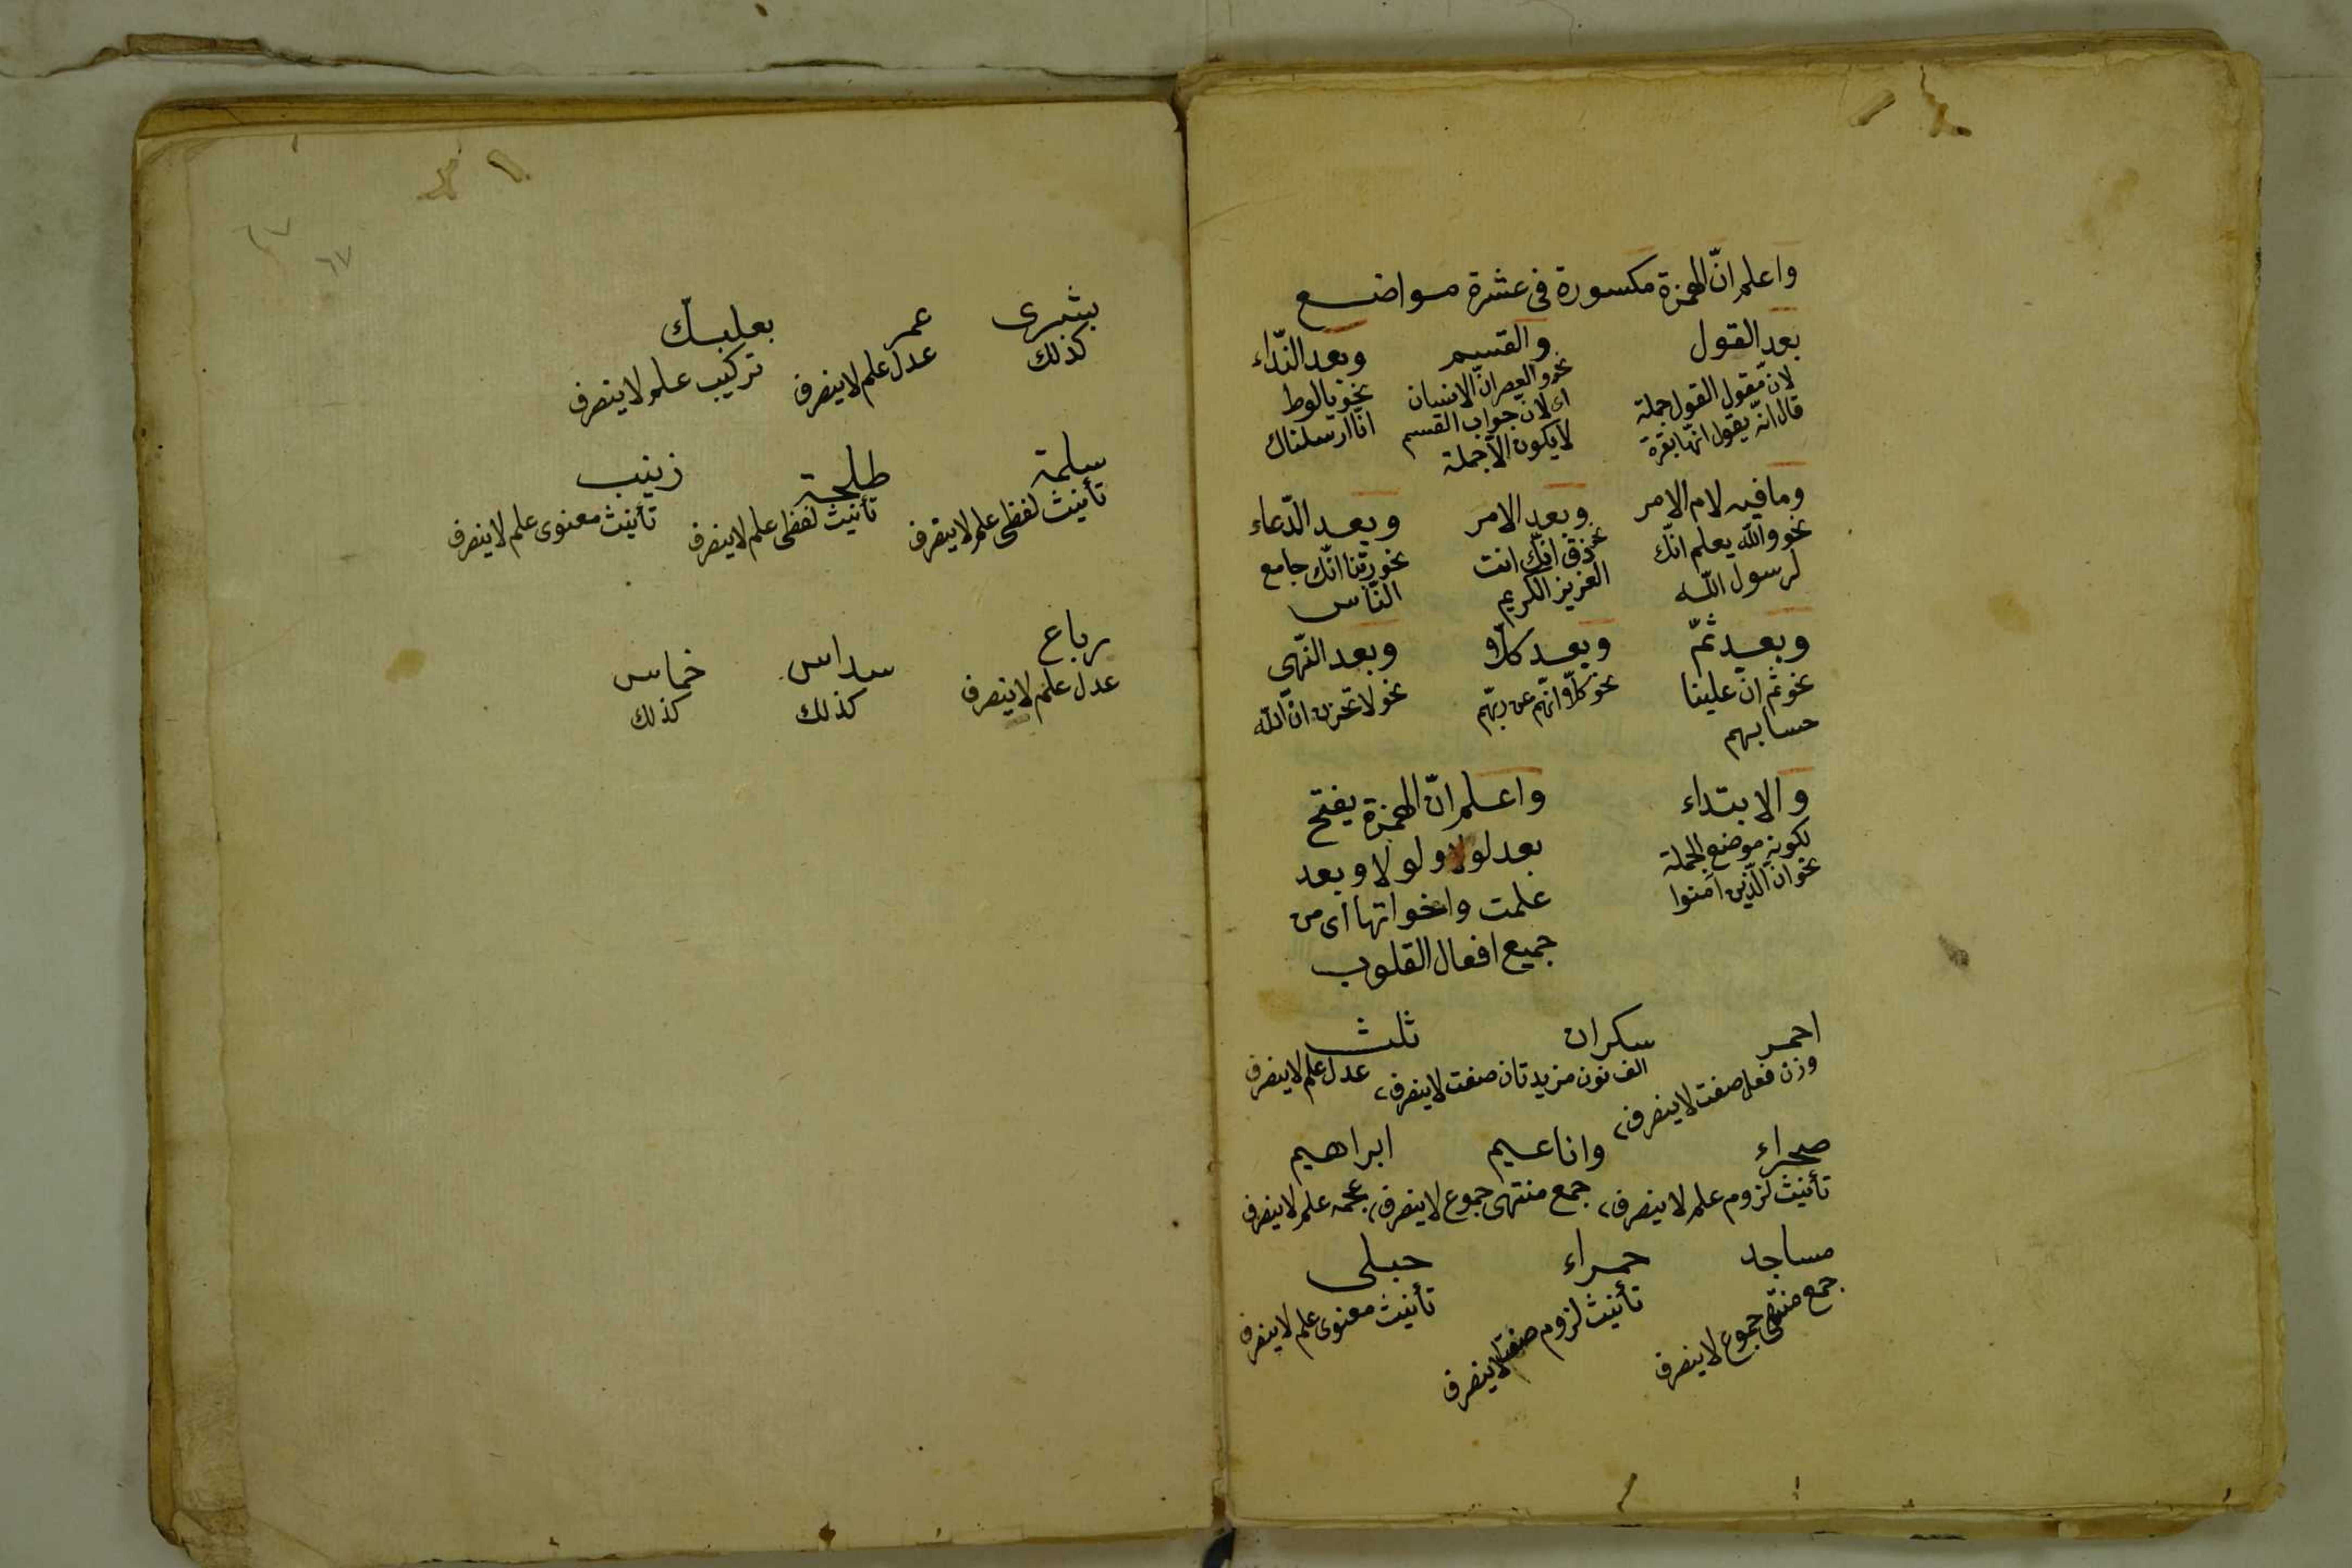 واعلم انّ الهمزة مكسورة فى عشرة مواضع
بعد القول
لان مقول القول جملة
قال انّه يقول انّها بقرة
والقسم
نحو والعصر انّ الانسان
اى لان جواب القسم
لا يكون الّا جملة
وبعد النّداء
نحو يا لوط
انا ارسلناك
وما فيه لام الامر
نحو والله يعلم انّك
لرسول الله
وبعد الامر
نحو ذق انّك انت
العزيز الكريم
وبعد الدّعاء
نحو ربّنا انّك جامع
النّاس
وبعد ثمّ
نحو ثم انّ علينا
حسابهم
وبعد كلّا
نحو كلّا انّهم عن ربّهم
وبعد النّهى
نحو لا تحزن انّ الله
والابتداء
لكونه موضع الجملة
نحو انّ الّذين آمنوا
واعلم انّ الهمزة يفتح
بعد لو ولولا وبعد
علمت واخواتها اى من
جميع افعال القلوب
احمر
وزن فعل صفت لا ينصرف
سكران
الف نون مزيدتان صفت لا ينصرف
ثلث
عدل علم لا ينصرف
صحراء
تأنيث لزوم علم لا ينصرف
واناعيم
جمع منتهى جموع لا ينصرف
ابراهيم
عجمه علم لا ينصرف
مساجد
جمع منتهى جموع لا ينصرف
حمراء
تأنيث لزوم صفت لا ينصرف
حبلى
تأنيث معنوى علم لا ينصرف
٦٧
بشرى
كذلك
عمر
عدل علم لا ينصرف
بعلبك
تركيب علم لا ينصرف
سلمة
تأنيث لفظى علم لا ينصرف
طلحة
تأنيث لفظى علم لا ينصرف
زينب
تأنيث معنوى علم لا ينصرف
رباع
عدل علم لا ينصرف
سداس
كذلك
خماس
كذلك